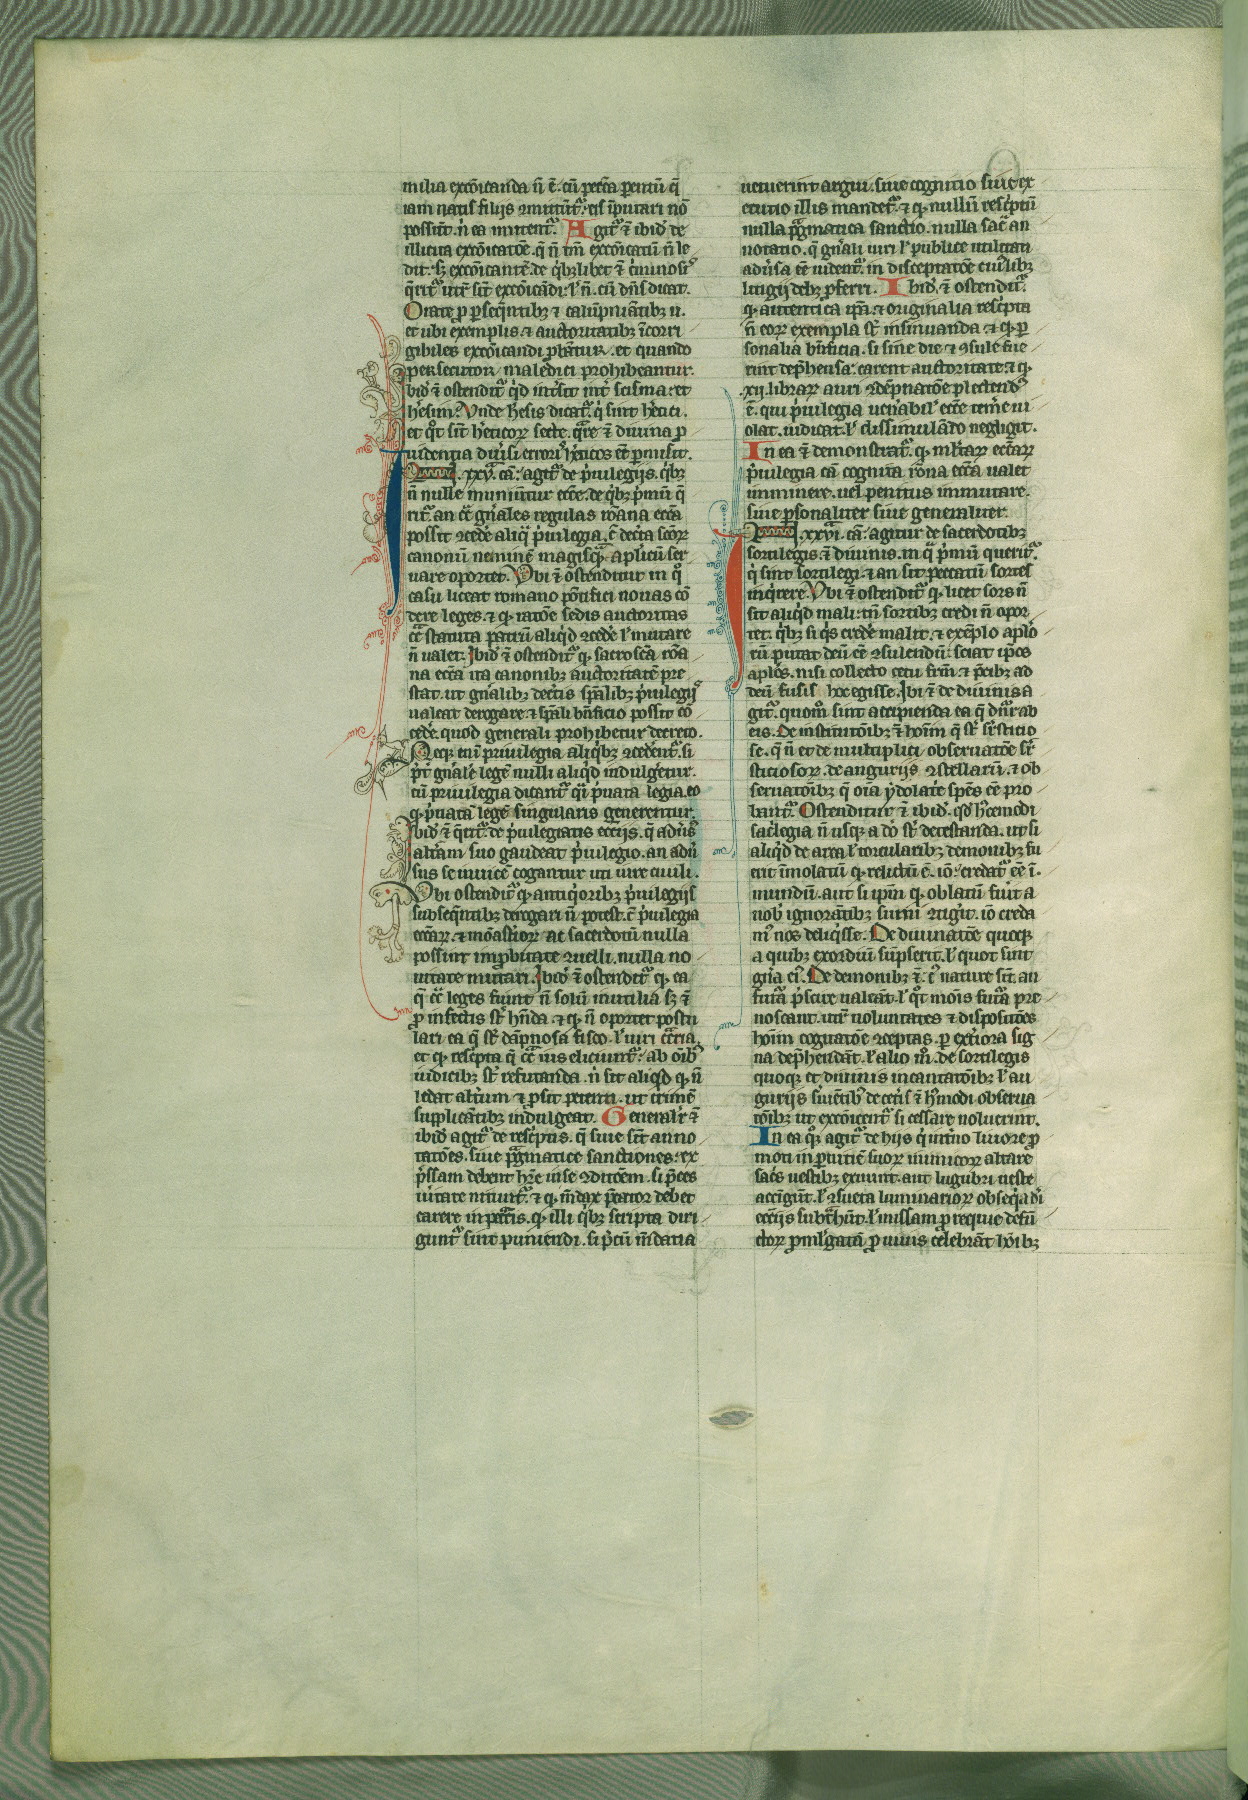 milia excōicanda n̄ ē. cū pctā pentū q̄
iam natis filijs ɔmitūt᷑. eis īputari nō
possūt. n̄ ea mitent᷑. Agit᷑ ē ibid' de
illicita excōicatōe. q̄ n̄ tm̄ excōicatū n̄ le
dit. sꝫ excōicantē. de q̇bꝫlibet ē c̓minosꝰ
q̄rit᷑ ut᷑ sīt excōicādi. l' n̄. cū dn̄s dicat.
Orate ꝓ ꝑseq̄ntibꝫ ⁊ calūpniātibꝫ u.
et ubi exemplis ⁊ auctoritatibꝫ īcorri
gibiles excōicandi ꝓbātur. et quando
ꝑsecutorꝝ maledici prohibeantur.
bid' ē ostendit᷑ q̇d int̓sit int̓ scisma et
h̓esim. Vnde h̓esis dicat᷑. q̇ sint h̓etici.
et qͦt sīt h̓eticorꝝ secte. q̄re ē diuina ꝓ
uidentia diu̓si errori h̓eticos eē ꝑmisit.
In xxvᵃ. cā. agit᷑ de p̓uilegijs. q̇bꝫ
n̄ nulle muniūtur ecce. de q̇bꝫ p̓mū q̄
rit᷑. an cͣ gn̄ales regulas rōana eccā
possit ɔcede aliq̄ p̓uilegia. ē decta scorꝝ
canonū neminē magisqᷓ aplicū ser
uare oportet. Vbi ē ostenditur in qͦ
casu liceat romano pōtifici nouas cō
dere leges. ⁊ ꝙ ratōe sedis auctoritas
cͣ statuta patrū aliq̇d ɔcede l' mutare
n̄ ualet. Ibid' ē ostendit᷑ ꝙ sacroscā rōa
na eccā ita canonibꝫ auctoritatē pre
stat. ut gn̄alibꝫ dectis spālibꝫ p̓uilegijs
ualeat derogare ⁊ spāli bn̄ficio possit cō
cede. quod generali prohibetur decreto.
Neqꝫ enī priuilegia aliq̇bꝫ ɔcedent᷑. si
p̓t gn̄ale legē nulli aliq̇d indulgetur.
cū priuilegia dicant᷑ q̄i p̓uata legia. eo
ꝙ p̓uatā legē singularis generentur.
bid' ē q̄rit᷑. de p̓uilegiatis ecc̄ijs. q̄ adu̓s
alt̓am suo gaudeat p̓uilegio. an adu̓
sus se inuicē cogantur uti iure ciuili.
Vbi ostendit᷑ ꝙ antiq̇oribꝫ p̓uilegijs
subseq̄ntibꝫ derogari n̄ potest. ē p̓uilegia
eccāꝝ. ⁊ mōastiorꝝ ac sacerdotū nulla
possint imꝓbitate ɔuelli. nulla no
uitate mutari. Ibid' ē ostendit᷑ ꝙ ea
q̄ cͣ leges fiunt n̄ solū inutilia sꝫ ē
ꝓ infectis st̓ hn̄da. ⁊ ꝙ n̄ oportet postu
lari ea q̄ st̓ dāpnosa fisco. l' iuri cͣria.
et ꝙ resc̓pta q̄ cͣ ius eliciunt᷑. ab oībꝰ
iudicibꝫ st̓ refutanda. n̄ sit aliq̇d ꝙ n̄
ledat alt̓um ⁊ ꝓsit petenti. ut crimē
supplicātibꝫ indulgeat. Generalr̄ ē
ibid' agit᷑ de resc̓ptis. q̄ siue sīt anno
tatōes. siue pᷓgmatice sanctiones. ex
p̓ssam debent hr̄e in se ɔditōem. si p̄ces
u̓itate nitūt᷑. ⁊ ꝙ m̄dax p̄cator debet
carere inpetᷓtis. ꝙ illi q̇bꝫ scripta diri
gunt᷑ sint puniendi. si p̄cū m̄datia
uetuerint argui. siue cognitio siue ex
ecutio illis mandet᷑. ⁊ ꝙ nullū resc̓ptū
nulla pᷓgmatica sanctio. nulla sac̓ an
notatio. q̄ gn̄ali iuri l' publice utilitati
adu̓sa eē uident᷑. in disceptatōe cui̓libꝫ
litigij debꝫ ꝓferri. Ibid'. ē ostendit᷑.
ꝙ autentica ip̄a. ⁊ originalia resc̓pta
n̄ eorꝝ exempla st̓ insinuanda ⁊ ꝙ ꝑ
sonalia bn̄ficia. si sine die ⁊ ɔsule fue
rint dep̓hensa. carent auctoritate ⁊ ꝙ
.xij. librarꝝ auri ɔdēpnatōe plectendꝰ
ē. qui p̓uilegia uen̓abil' ecce tem̓e ui
olat. uidicat. l' dissimulādo negligit.
In ea ē demonstrat᷑. ꝙ mltarꝝ eccārꝝ
p̓uilegia cā cognita rōna eccā ualet
imminere. uel penitus immutare.
siue ꝑsonaliter siue generaliter.
In .xxviᵃ. cā. agitur de sacerdotibꝫ
sortilegis. ē diuinis. in qᷓ p̓mū querit᷑.
q̇ sint sortilegi. ⁊ an sit peccatū sortes
inq̇rere. Vbi ē ostendit᷑ ꝙ licet sors n̄
sit aliq̇d mali. tn̄ sortibꝫ credi n̄ opor
tet. q̇bꝫ si q̇s crede malit. ⁊ exēplo aplō
rū putat deū eē ɔsulendū. sciat ip̄os
aplōs. nisi collecto cetu frm̄. ⁊ p̄cibꝫ ad
deū fusis hoc egisse. Ibi ē de diuinis a
git᷑. quom̄ sint accipienda ea q̄ dn̄r ab
eis. De institutōibꝫ ē hoīm q̄ st̓ sr̄sticio
se. q̄ n̄ et de multiplici obseruatōe sr̄
sticiosorꝝ. de auguriis ɔstellarū. ⁊ ob
seruatōibꝫ q̄ oīa ydolat̓e spēs eē pro
bant᷑. Ostenditur ē ibid'. qd' h̓cemodi
sac̓legia n̄ usqꝫ a dō st̓ detestanda. ut si
aliq̇d de area l' torcularibꝫ demonibꝫ fu
erit īmolatū ꝙ relictū ē. iō. credat᷑ eē ī.
mundū. aut si ip̄m ꝙ oblatū fiūt a
nob' ignorātibꝫ sumi ɔtigit. iō creda
mꝰ nos deliq̇sse. De diuinatōe quoqꝫ
a quibꝫ exordiū sūpserit. l' quot sint
gn̄a ei'. De demonibꝫ ē. cꝰ nature sīt. an
futᷓa p̓scire ualeāt. l' qͦt mōis futᷓa pre
noscant. ut᷑ uoluntates ⁊ dispositōes
hoīm cogitatōe ɔceptas. ꝑ ext̓iora sig
na dep̓hendāt. l' alio mͦ. de sortilegis
quoqꝫ et diuinis incantatōibꝫ l' au
guriis sūientibꝰ de cet̓is ē h̓modi obserua
tōibꝫ ut excōicent᷑. si cessare noluerint.
In ea qꝫ agit᷑ de hijs q̇ int̓no liuore ꝓ
moti in ꝑnitiē suorꝝ inimicorꝝ altare
sac̓s uestibꝫ exuunt. aut lugubri ueste
accigūt. l' ɔsueta luminariorꝝ obseq̇a d'i
ecc̄ijs subt̓hūt. l' missam ꝓ requie defū
ctorꝝ ꝓmlgatā ꝓ uiuis celebrāt hōibꝫ